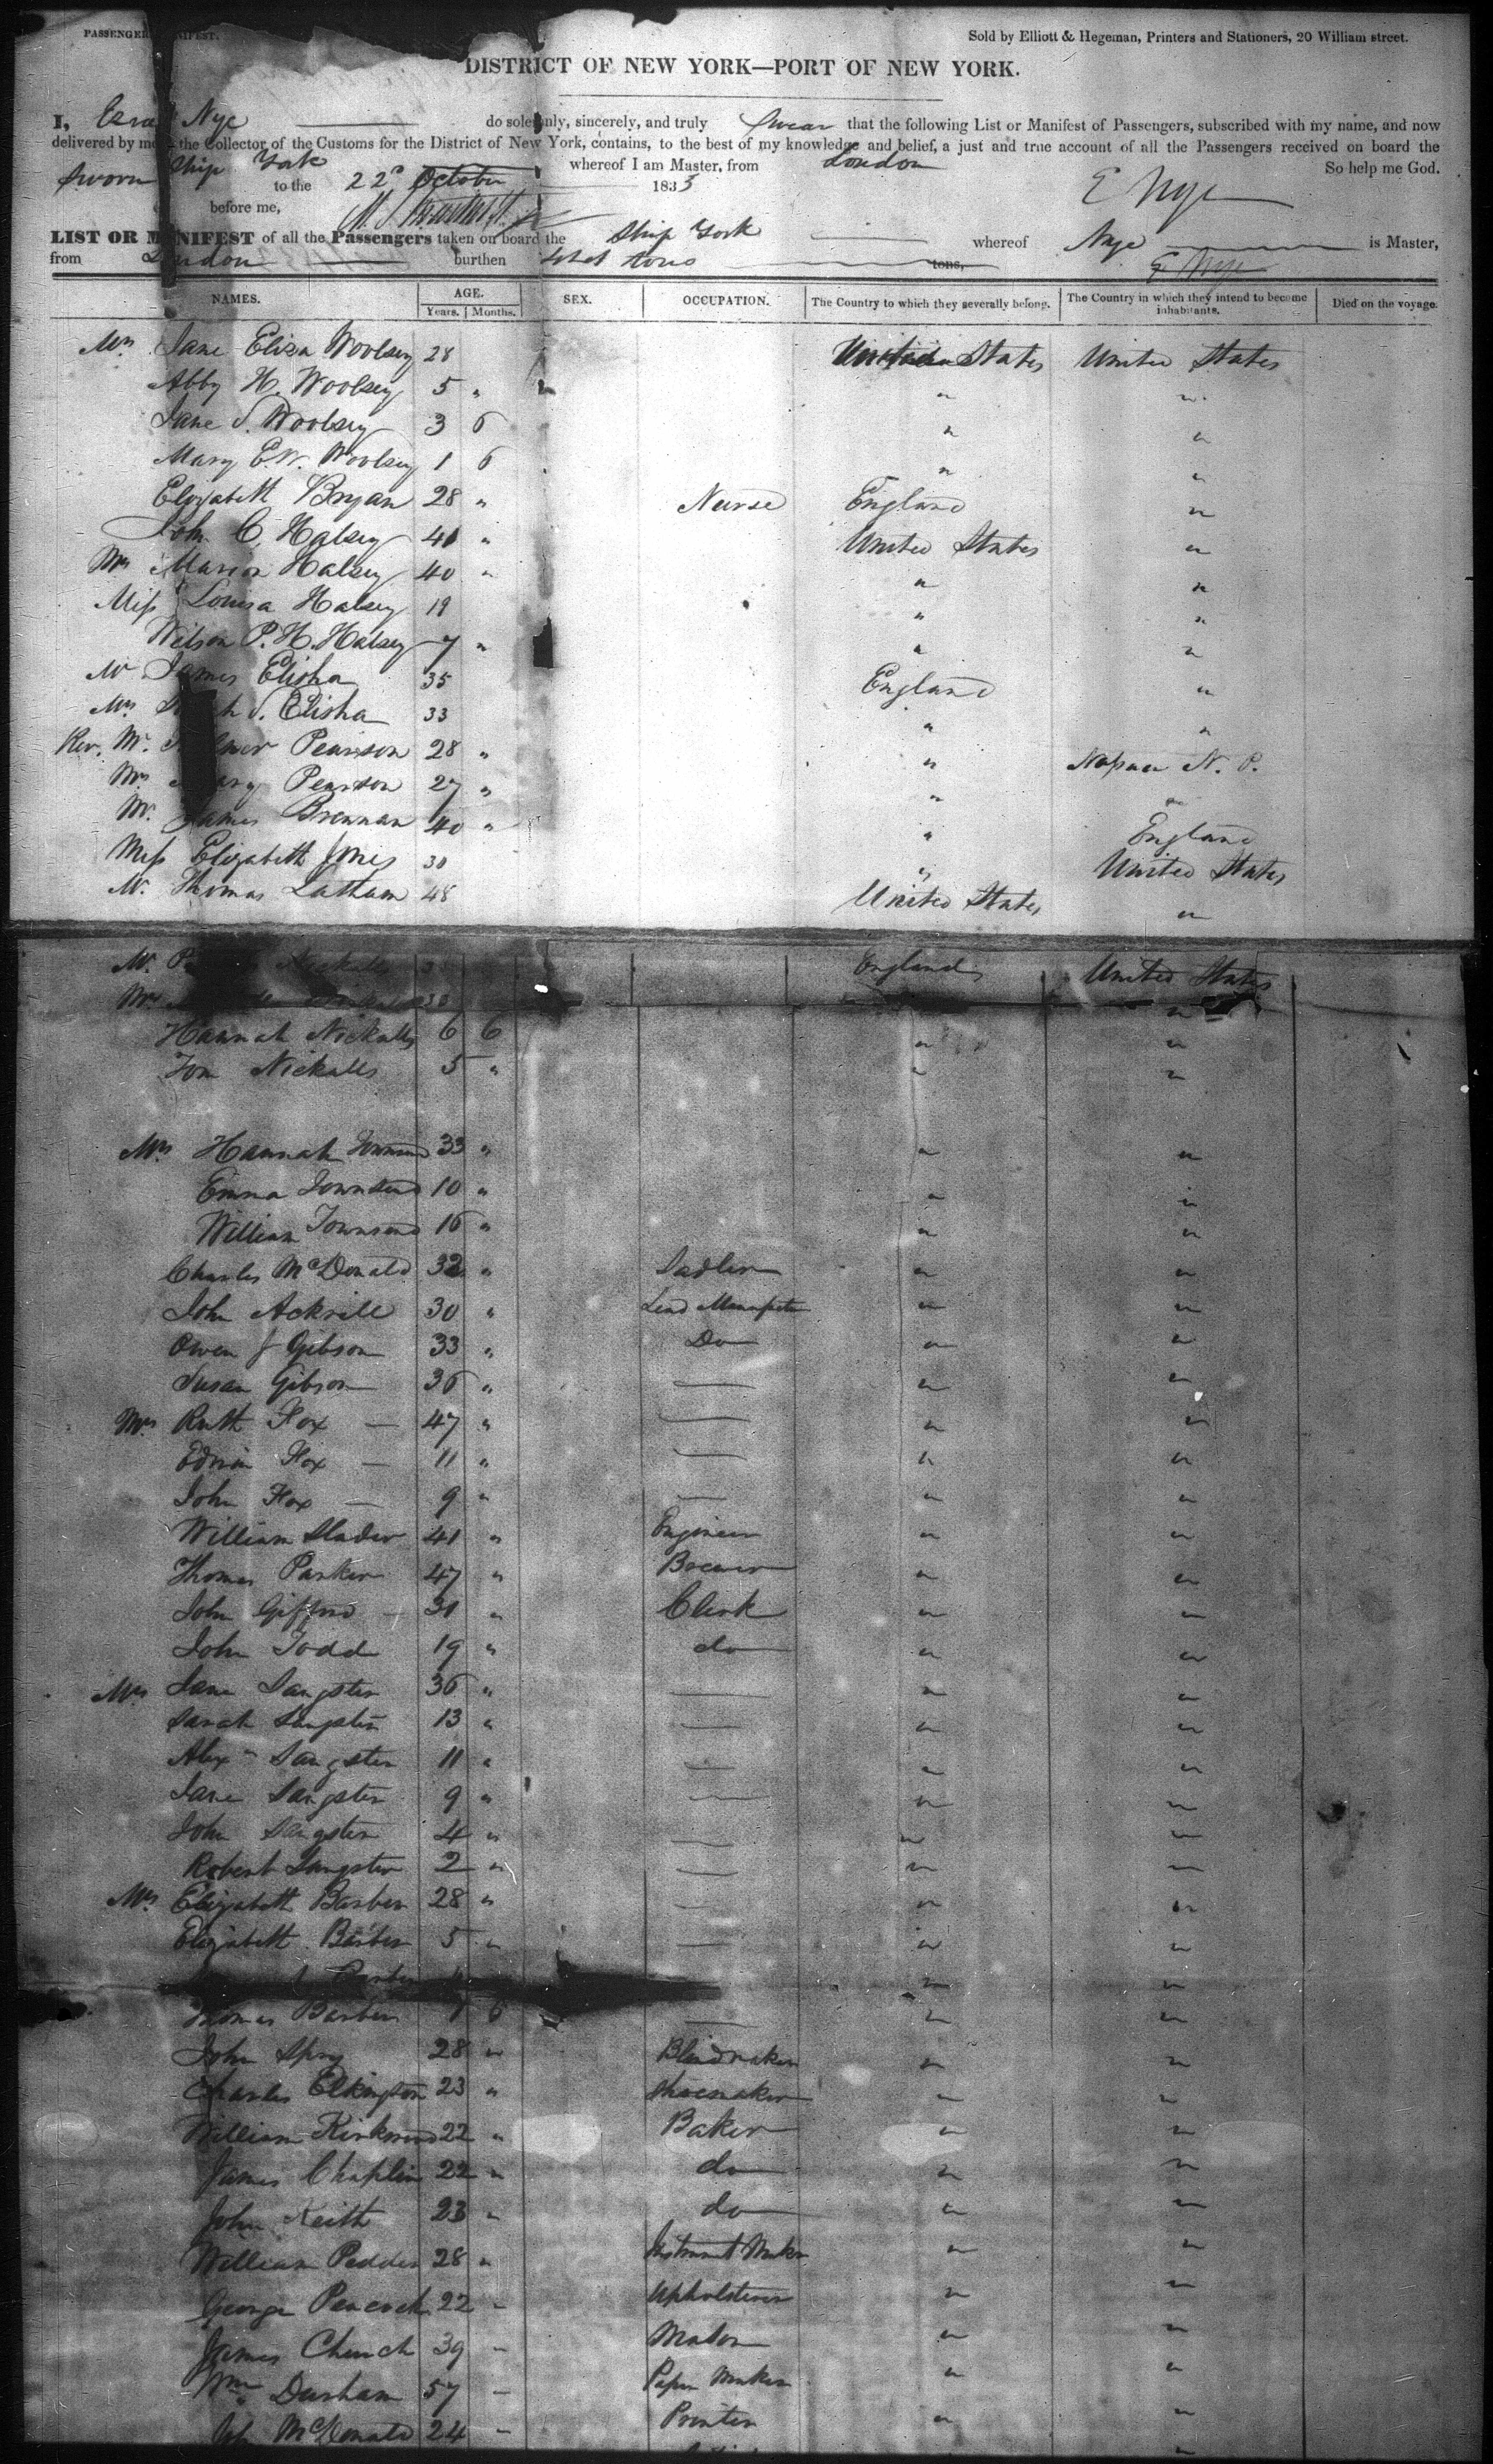 PASSENGER MANIFEST.
Sold by Elliott & Hegeman, Printers and Stationers, 20 William street.
DISTRICT OF NEW YORK—PORT OF NEW YORK.
I, Ezra Nye do solemnly, sincerely, and truly swear that the following List or Manifest of Passengers, subscribed with my name, and now
delivered by me to the Collector of the Customs for the District of New York, contains, to the best of my knowledge and belief, a just and true account of all the Passengers received on board the
Ship York whereof I am Master, from London So help me God.
Sworn to the 22d October 1833 E Nye
before me,
LIST OR MANIFEST of all the Passengers taken on board the Ship York whereof Nye is Master,
from London burthen tons tons, E Nye
NAMES. AGE. SEX. OCCUPATION. The Country to which they severally belong. The Country in which they intend to become inhabitants. Died on the voyage.
Years. Months.
Mrs Jane Eliza Woolsey 28 United States United States
Abby H. Woolsey 5 " " "
Jane S. Woolsey 3 6 " "
Mary E.W. Woolsey 1 6 " "
Elizabeth Bryan 28 " Nurse England "
John C. Halsey 41 " United States "
Mrs Marion Halsey 40 " " "
Miss Louisa Halsey 19 " "
Wilson P. H. Halsey 7 " " "
Mr James Elisha 35 England "
Mrs S. Elisha 33 " "
Rev. Mr. Pearson 28 " " N. P.
Mrs Mary Pearson 27 " " "
Mr. James Brennan 40 " " England
Miss Elizabeth Jones 30 " United States
Mr. Thomas Latham 48 United States "
Mr. Nickalls England United States
Mrs 30 "
Hannah Nickalls 6 6 " "
Tom Nickalls 5 " " "
Mrs Hannah Townsend 33 " " "
Emma Townsend 10 " " "
William Townsend 16 " " "
Charles McDonald 32 " Sadler " "
John Ackrill 30 " Lead " "
Owen J Gibson 33 " Do " "
Susan Gibson 36 " — " "
Mrs Ruth Fox — 47 " — " "
Edwin Fox — 11 " — " "
John Fox — 9 " — " "
William Slader 41 " Engineer " "
Thomas Parker 47 " Brewer " "
John Gifford — 31 " Clerk " "
John Todd 19 " do " "
Mrs Jane Sangster 36 " — " "
Sarah Sangster 13 " — " "
Alex Sangster 11 " — " "
Jane Sangster 9 " — " "
John Sangster 4 " — " "
Robert Sangster 2 " — " "
Mrs Elizabeth Barber 28 " — " "
Elizabeth Barber 5 " — " "
Barber " "
Thomas Barber 1 6 — " "
John Spry 28 " Blindmaker " "
Charles Elkington 23 " Shoemaker " "
William Kirkwood 22 " Baker " "
James Chaplin 22 " do " "
John Keith 23 " do " "
William Pedder 28 " Instrument Maker " "
George Peacock 22 " Upholsterer " "
James Church 39 " Mason " "
Wm Durham 57 — Paper Maker " "
McDonald 24 — Printer " "